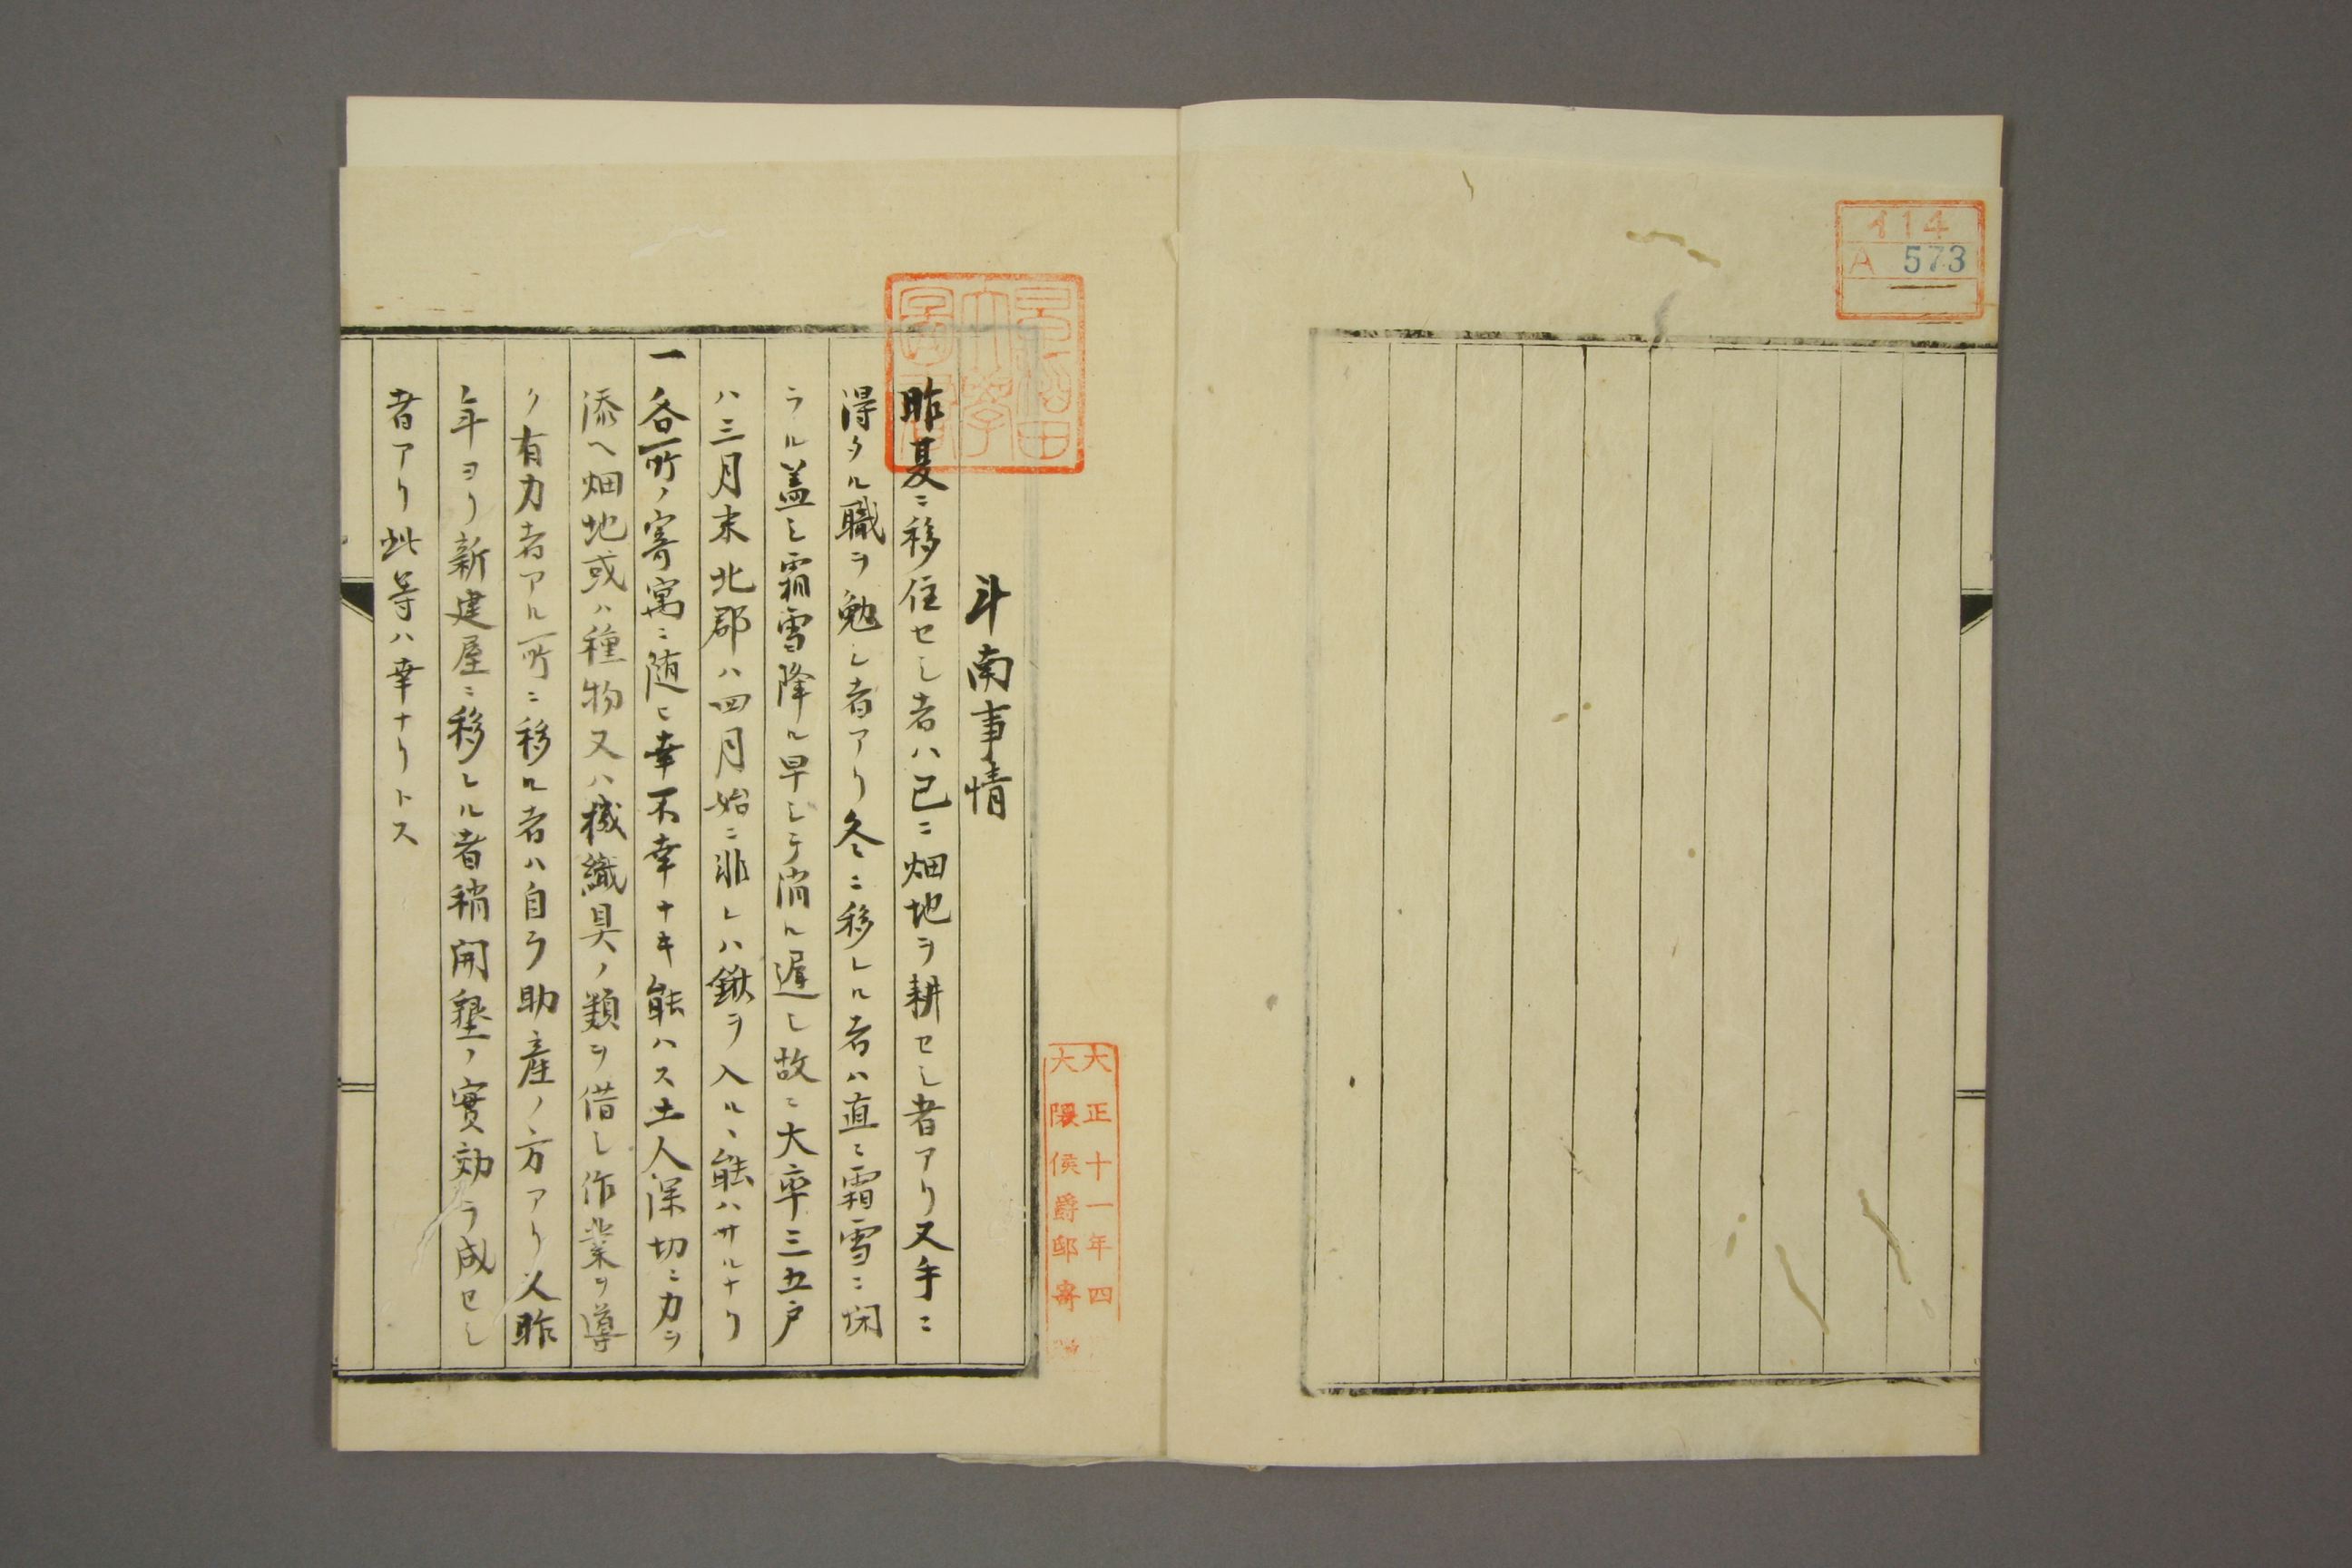 イ14
A 573
早稲田
大學
圖書
大正十一年四
大隈侯爵邸寄贈
斗南事情
昨夏ニ移住セシ者ハ已ニ畑地ヲ耕セシ者アリ又手ニ
得タル職ヲ勉シ者アリ冬ニ移レル者ハ直ニ霜雪ニ困
ラル蓋シ霜雪降ル早シテ消ル遅シ故ニ大率三五戸
ハ三月末北郡ハ四月始ニ非レハ鍬ヲ入ルヽ能ハサルナリ
一各所ノ寄寓ニ随ヒ幸不幸ナキ能ハス土人深切ニ力ヲ
添ヘ畑地或ハ種物又ハ機織具ノ類ヲ借シ作業ヲ導
ク有力者アル所ニ移ル者ハ自ラ助産ノ方アリ又昨
年ヨリ新建屋ニ移レル者稍開墾ノ實効ヲ成セシ
者アリ此等ハ幸ナリトス